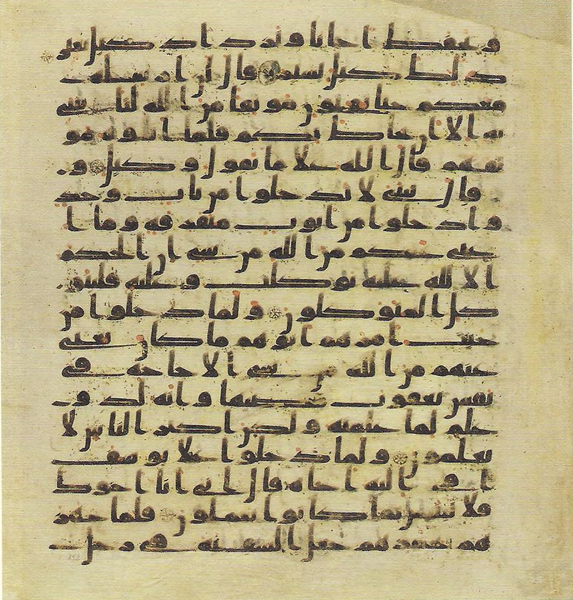 ونحفظ اخانا ونزداد كيل بعير
ذلك كيل يسير قال لن ارسله
معكم حتى تؤتون موثقا من الله لتاتننى
به الا ان يحاط بكم فلما اتوه مو
ثقهم قال الله على ما نقول وكيل و
قال يبنى لا تدخلوا من باب وحد
وادخلوا من ابوب متفرقة وما ا
غنى عنكم من الله من شى ان الحكم
الا لله عليه توكلت وعليه فليتو
كل المتوكلون ولما دخلوا من
حيث امرهم ابوهم ما كان يغنى
عنهم من الله من شى الا حاجة فى
نفس يعقوب قضيها وانه لذو
علم لما علمنه ولكن اكثر الناس لا
يعلمون ولما دخلوا على يوسف
اوى اليه اخاه قال انى انا اخوك
فلا تبتئس بما كانوا يعملون فلما جهز
هم بجهزهم جعل السقية فى رحل